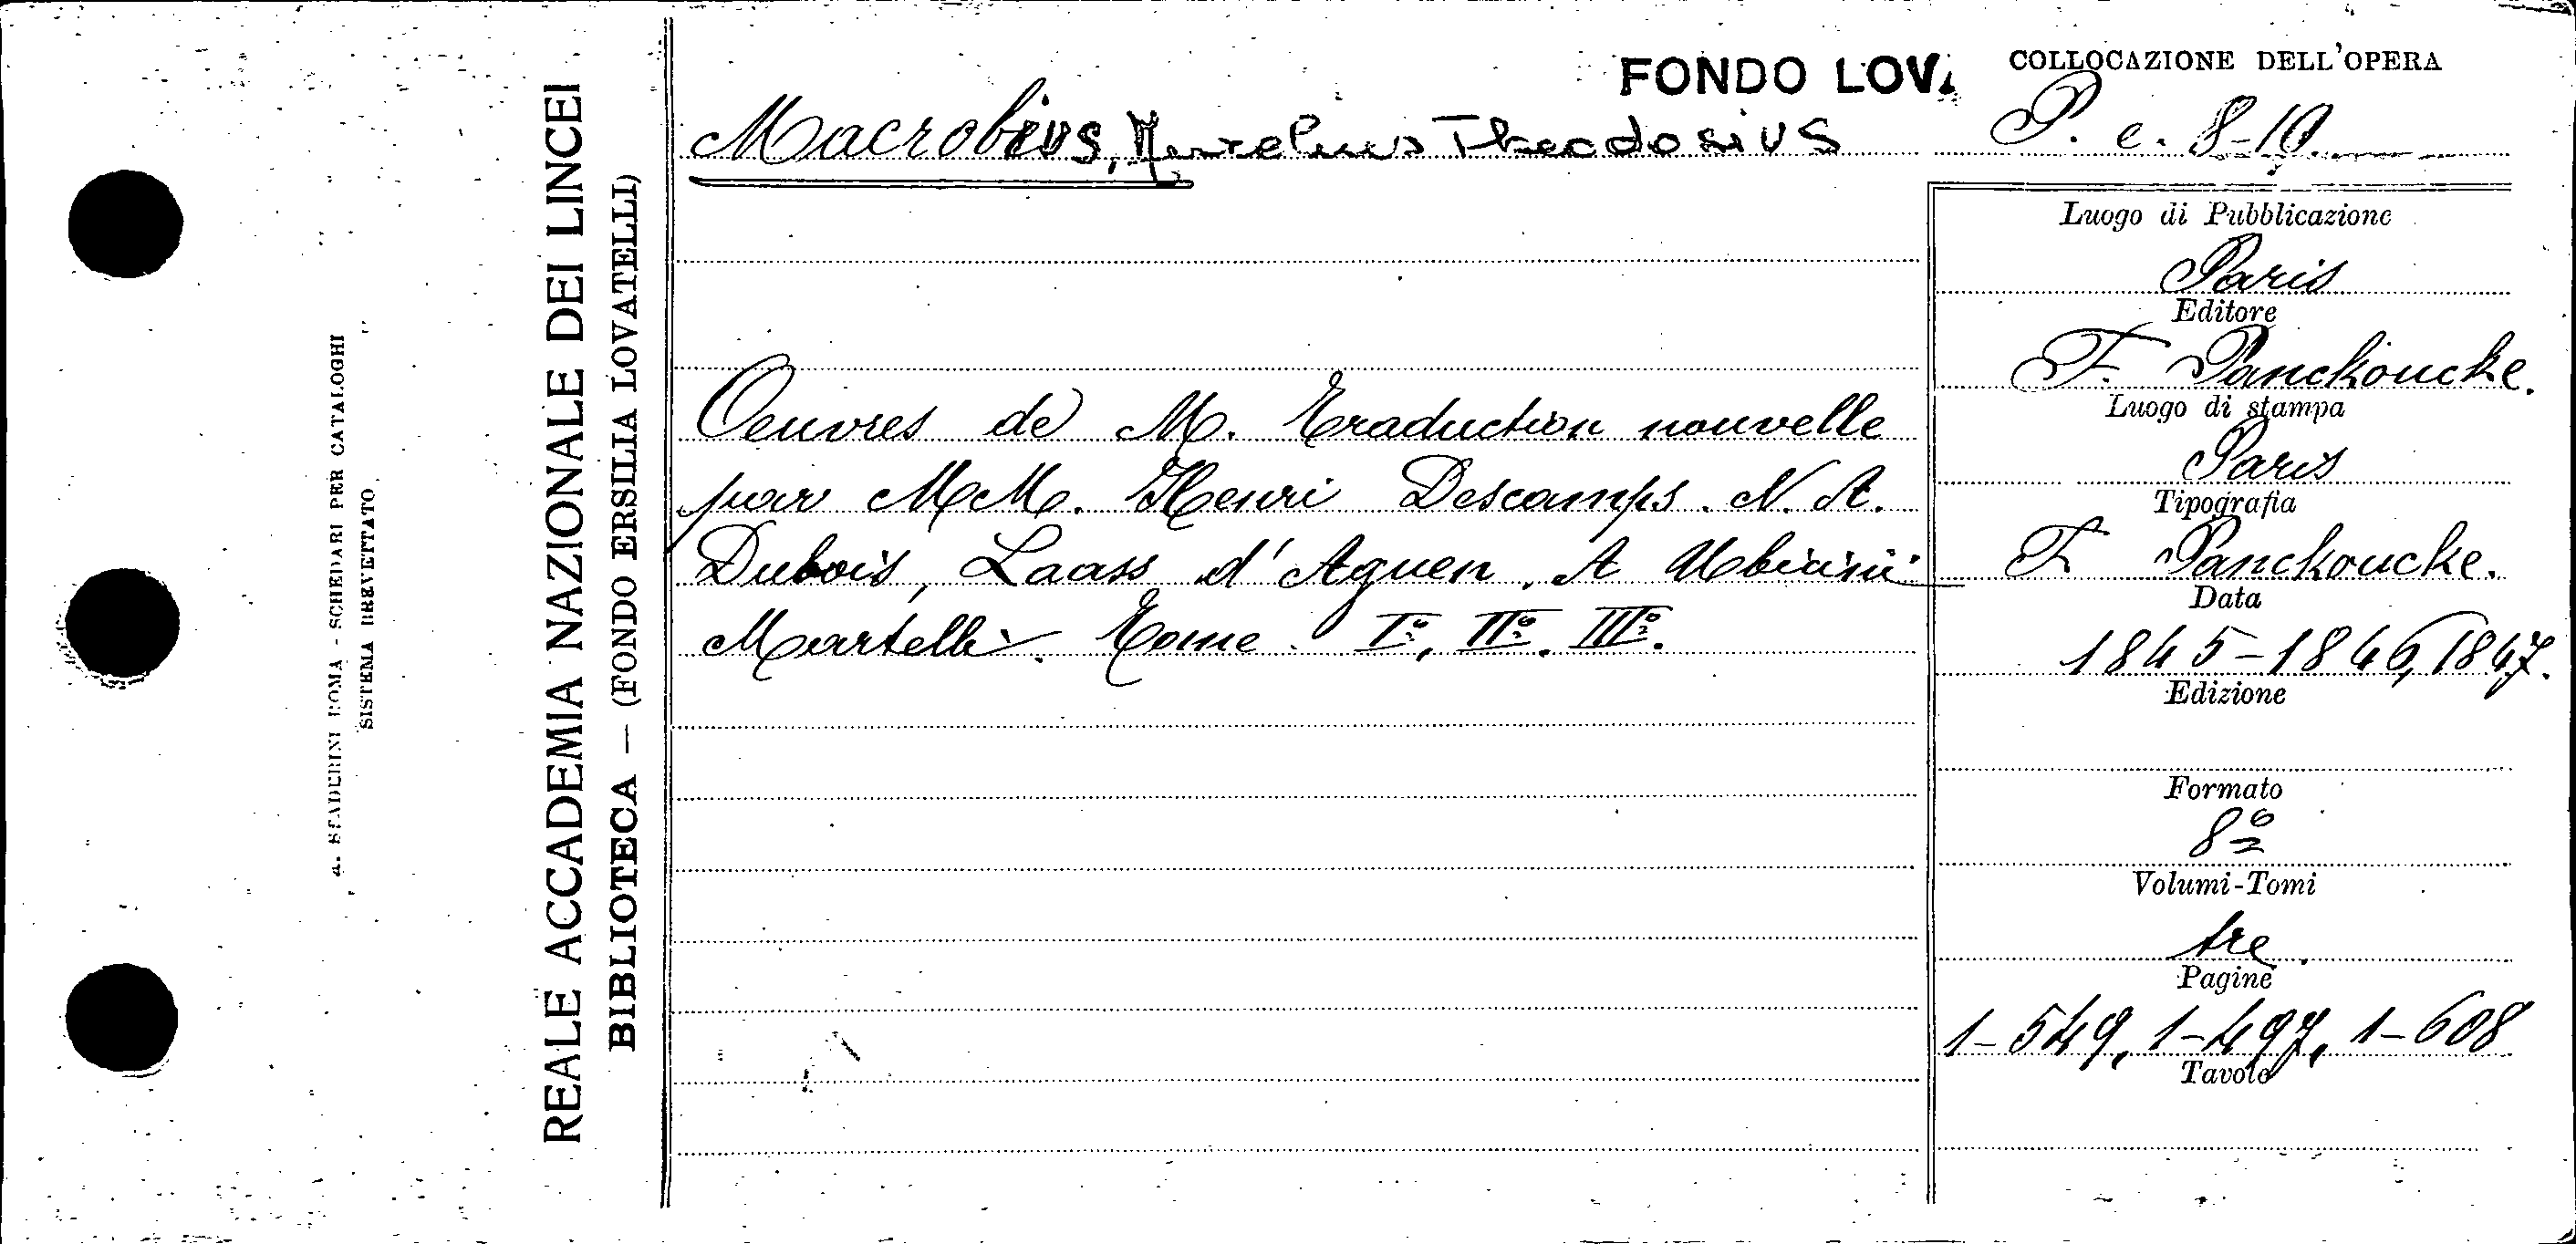 FONDO LOV.
COLLOCAZIONE DELL'OPERA
P. c. 8-10.
Macrobius, Aurelius Theodosius
Oeuvres de M. Traduction nouvelle
par MM. Henri Descamps. N. A.
Dubois, Laass d'Aguen, A Ubicini
Martelli. Tome I°, II°. III°.
Luogo di Pubblicazione
Paris
Editore
F. Panckoucke.
Luogo di stampa
Paris
Tipografia
F. Panckoucke.
Data
1845-1846, 1847.
Edizione
Formato
8°
Volumi-Tomi
tre.
Pagine
1-549, 1-497, 1-608
Tavole
REALE ACCADEMIA NAZIONALE DEI LINCEI
BIBLIOTECA — (FONDO ERSILIA LOVATELLI)
A. STADERINI ROMA - SCHEDARI PER CATALOGHI
SISTEMA BREVETTATO